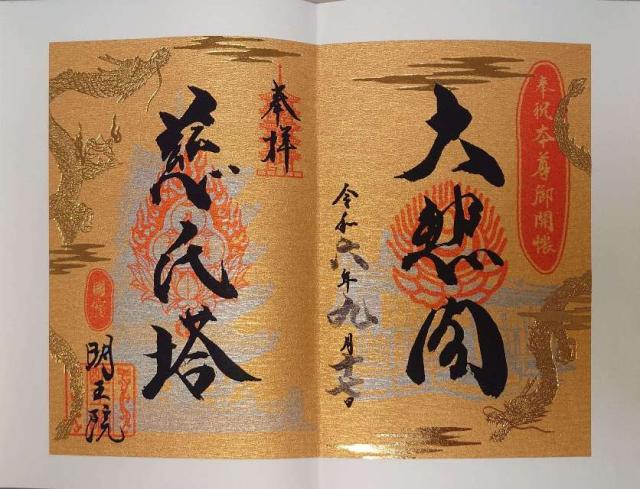 奉祝本尊御開帳
大悲閣
令和六年九月
奉拝
慈氏塔
國寶
明王院